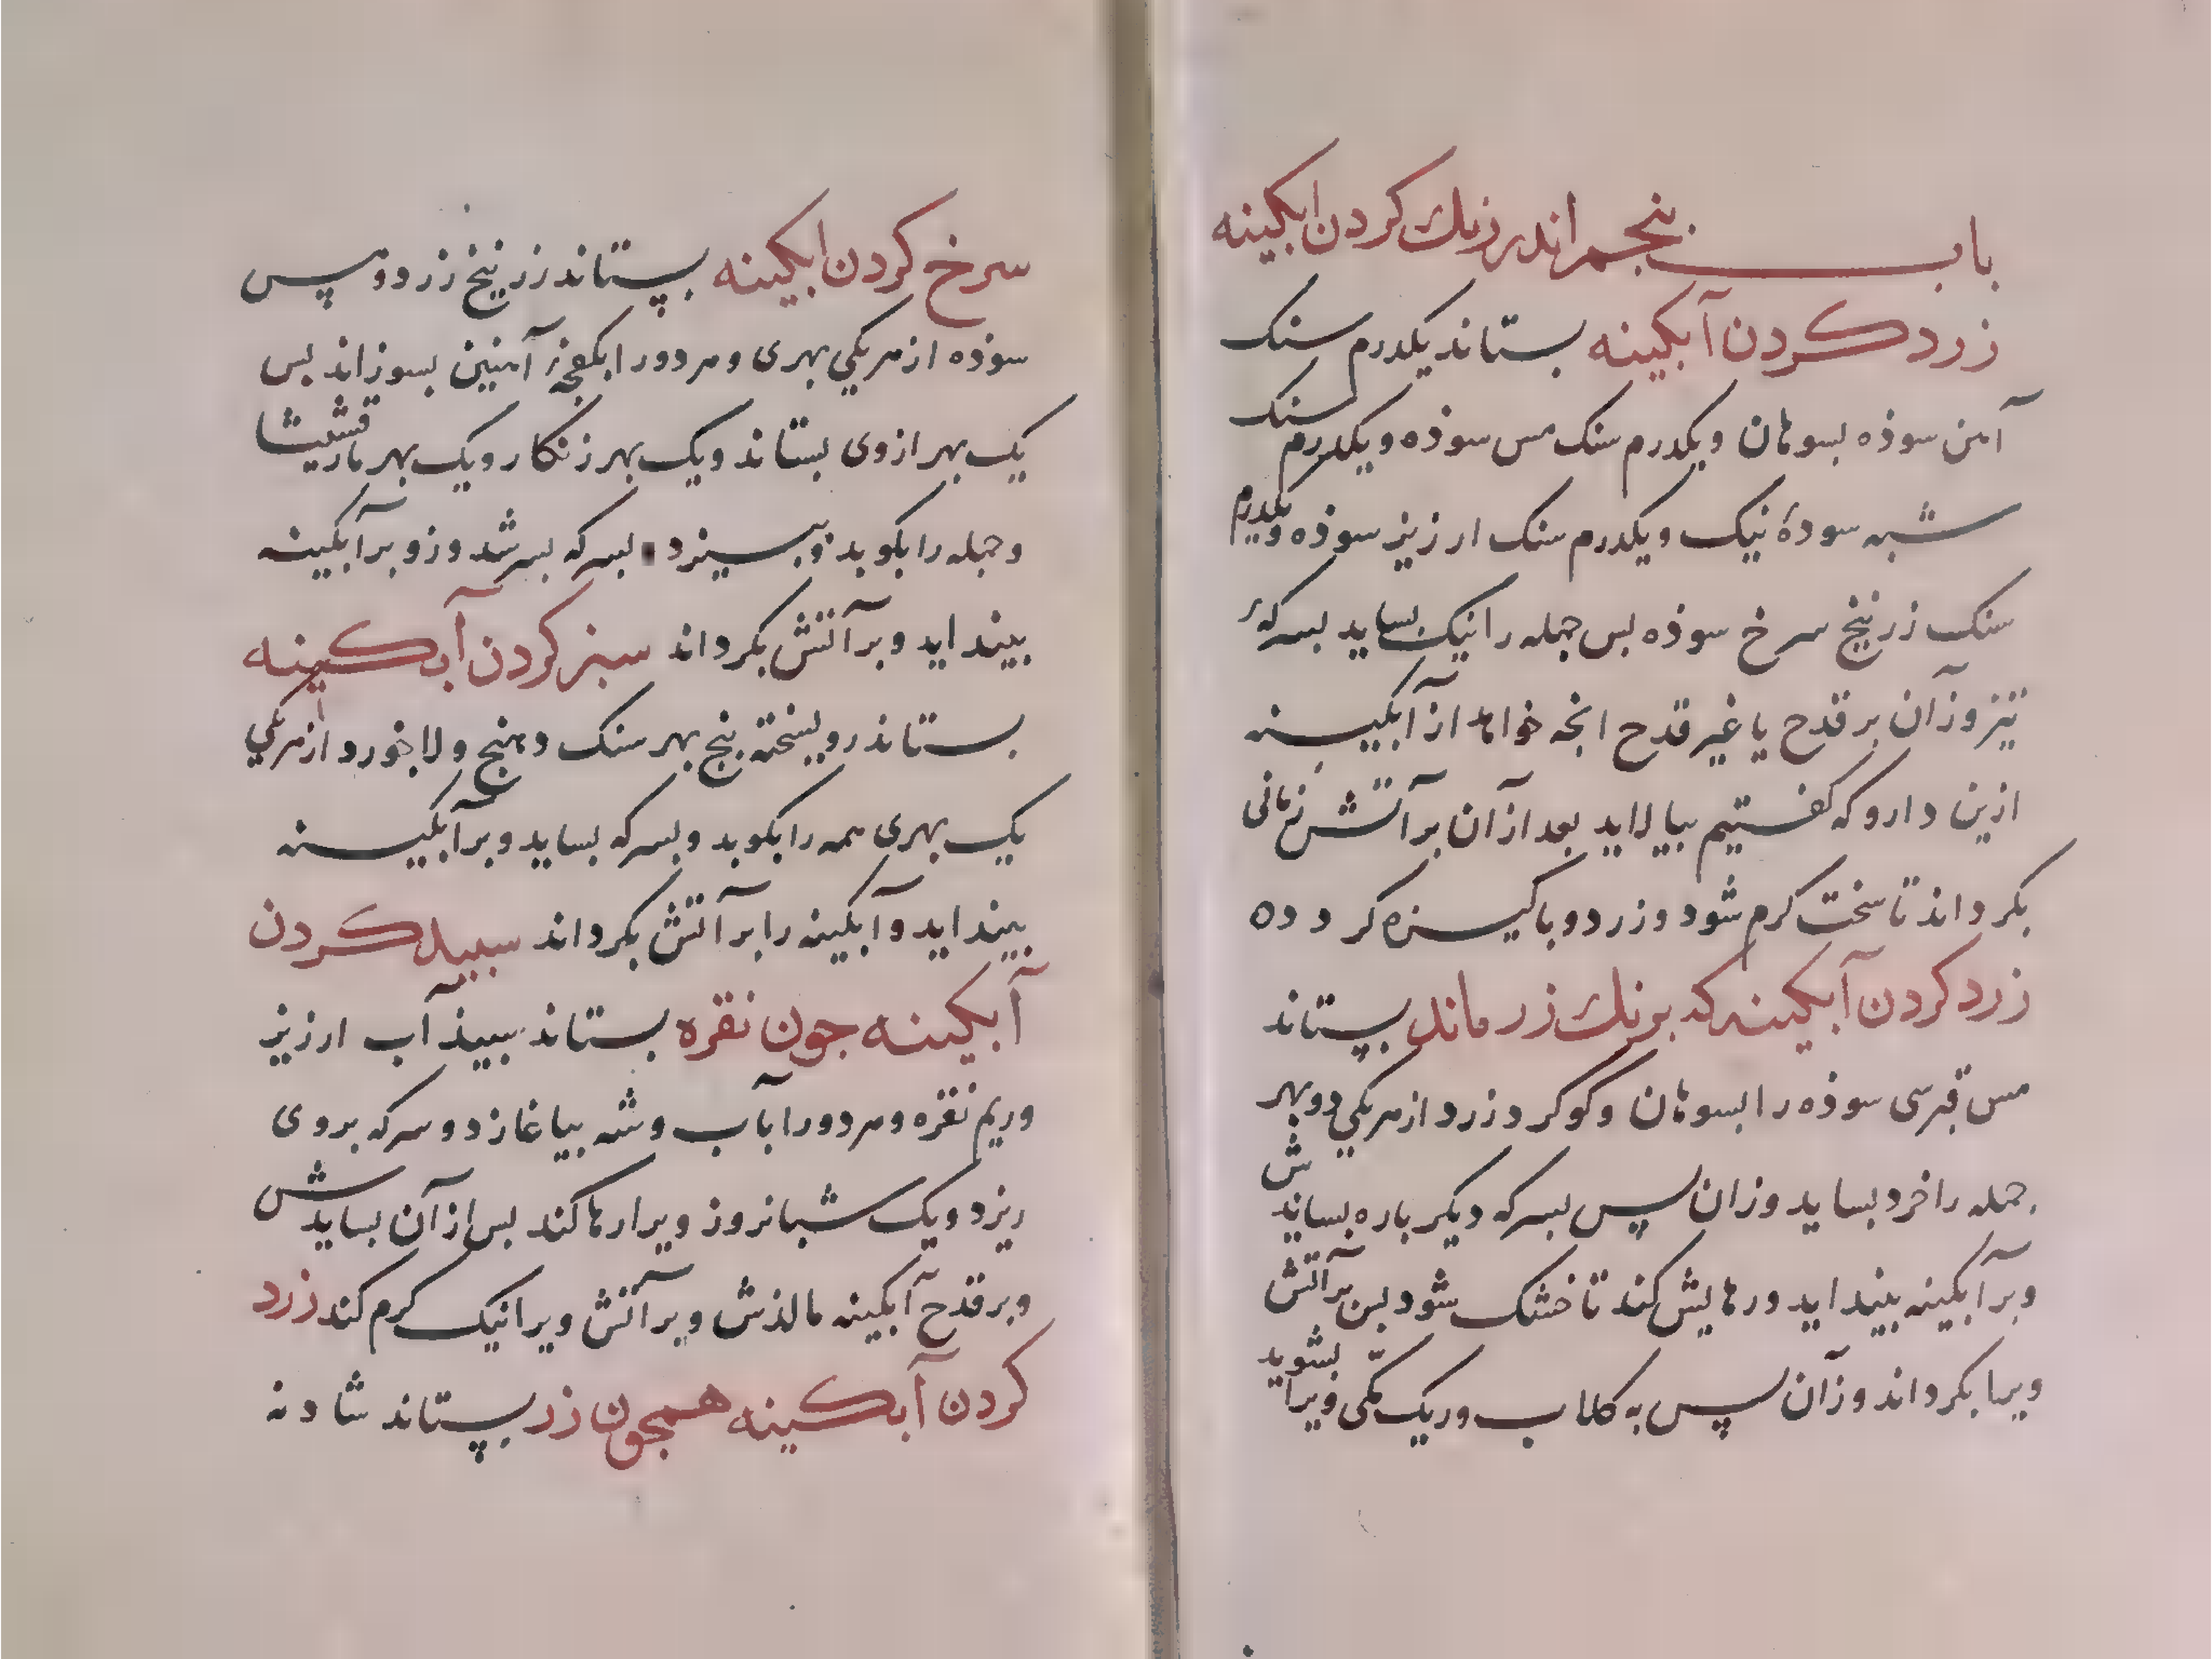 باب پنجم اندر رنك کردن ابکینه
زرد کردن آبکینه بستاند یکدرم سنک
آهن سوذه بسوهان و یکدرم سنک مس سوذه و یکدرم سنک
شبه سودهٔ نیک و یکدرم سنک ارزیز سوذه و یکدرم
سنک زرنیخ سرخ سوذه بس جمله را نیک بساید بسرکهٔ
تیز وزآن بر قدح یا غیر قدح انجه خواهد از آبکینه
ازین دارو که کفتیم بیالاید بعد از آن بر آتش زمانی
بکرداند تا سخت کرم شود و زرد و باکیزه کردده
زرد کردن آبکینه که برنك زر ماند بپستاند
مس قبرسی سوذه را بسوهان و کوکرد زرد از هریکی دو بهر
جمله را خرد بساید وزان پس بسرکه دیکر باره بسایدش
وبر آبکینه بینداید ورهایش کند تا خشک شود بس بر آتش
ویرا بکرداند وزآن پس به کلاب وریک مکی ویرا بشوید
سرخ کردن ابکینه بپستاند زرنیخ زرد و پس
سوذه از هریکی بهری و هر دو را بکفجهٔ آهنین بسوزاند بس
یک بهر ازوی بستاند ویک بهر زنکار ویک بهر مارقشیشا
و جمله را بکوبد وببیزد بسرکه بسرشد وزو بر آبکینه
بینداید وبر آتش بکرداند سبز کردن آبکینه
بستاند رویسخته پنج بهر سنک دهنج ولاجورد از هریکی
یک بهری همه را بکوبد وبسرکه بساید وبر آبکینه
بینداید وآبکینه را بر آتش بکرداند سبید کردن
آبکینه جون نقره بستاند سبیذ آب ارزیز
وریم نقره وهر دو را بآب وشه بیاغازد وسرکه بروی
ریزد ویک شبانروز ویرا رها کند بس از آن بسایدش
وبر قدح آبکینه مالذش وبر آتش ویرا نیک کرم کند زرد
کردن آبکینه همجون زر بپستاند شادنه